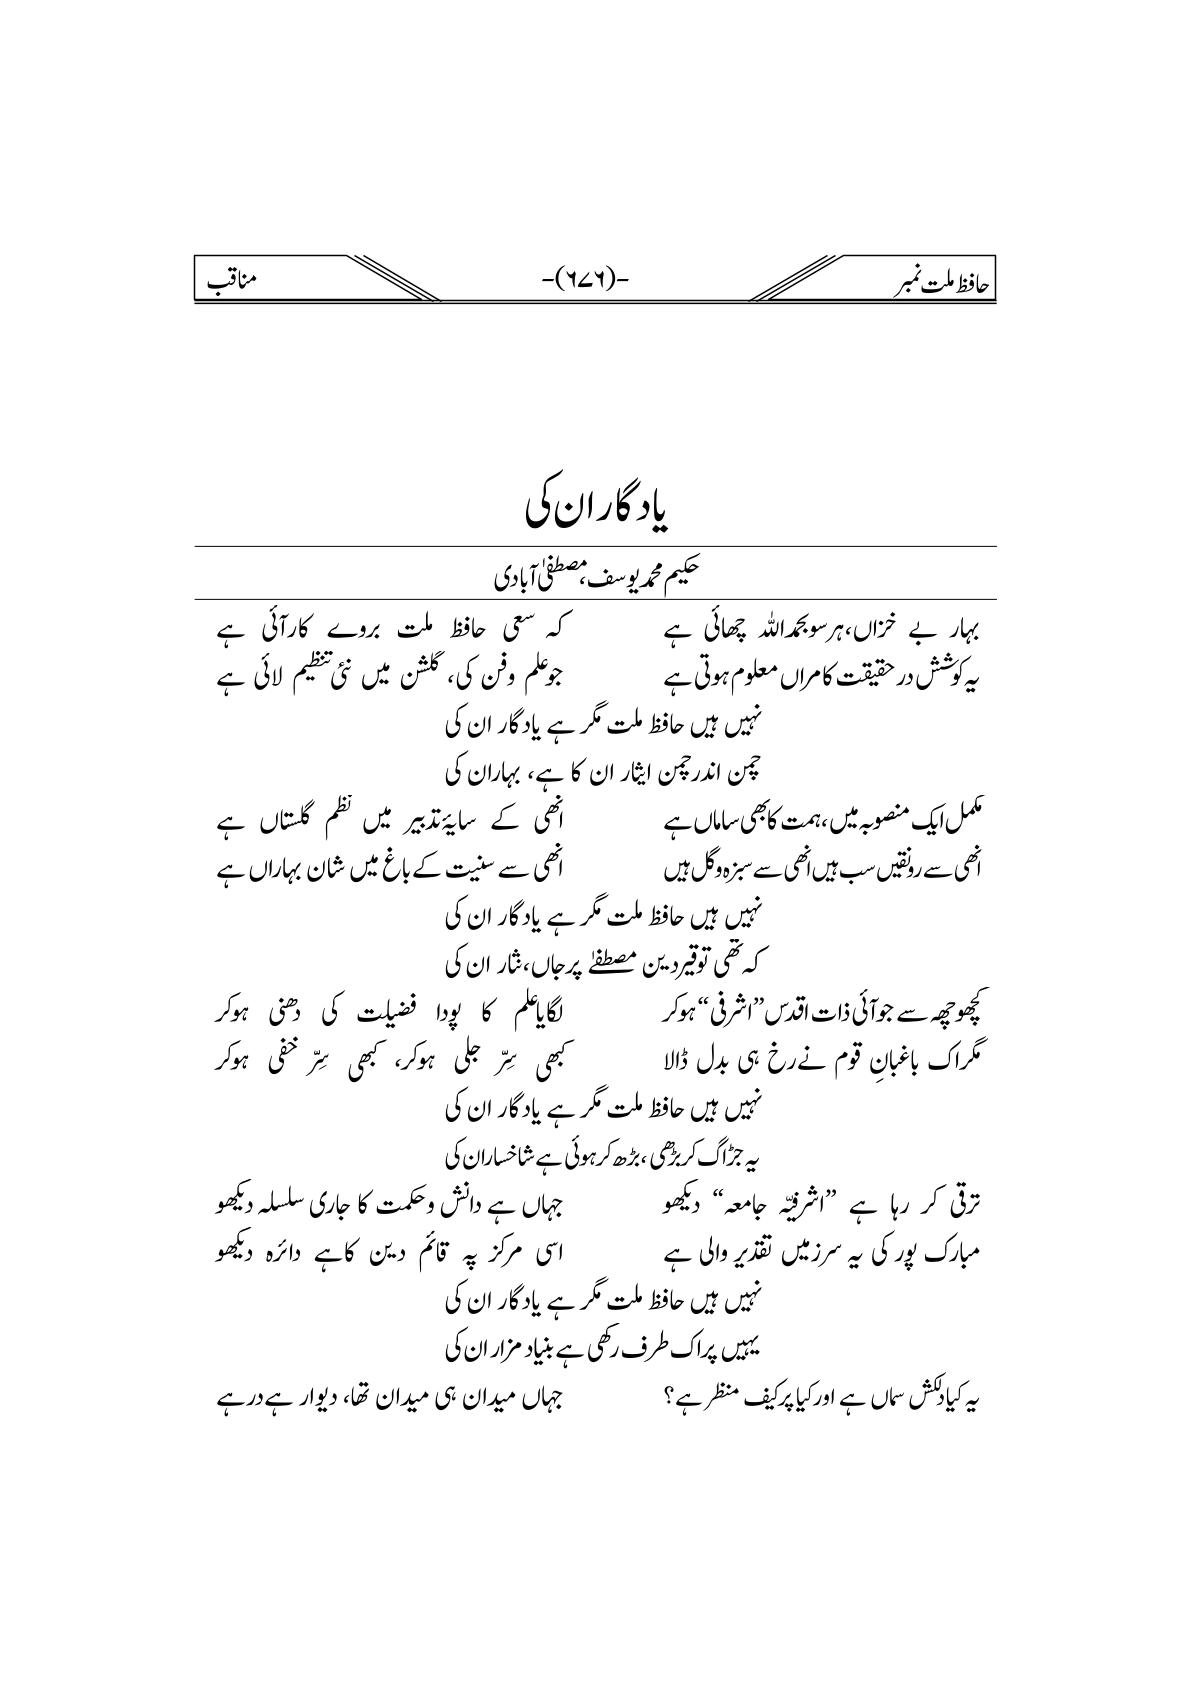 حافظ ملت نمبر -(۶۷۶)- مناقب
یادگار ان کی
حکیم محمد یوسف، مصطفیٰ آبادی
بہار بے خزاں، ہر سو بحمداللہ چھائی ہے کہ سعی حافظ ملت بروے کار آئی ہے
یہ کوشش در حقیقت کامراں معلوم ہوتی ہے جو علم وفن کی، گلشن میں نئی تنظیم لائی ہے
نہیں ہیں حافظ ملت مگر ہے یادگار ان کی
چمن اندر چمن ایثار ان کا ہے، بہار ان کی
مکمل ایک منصوبہ میں، ہمت کا بھی ساماں ہے انھی کے سایۂ تدبیر میں نظم گلستاں ہے
انھی سے رونقیں سب ہیں انھی سے سبزہ و گل ہیں انھی سے سنیت کے باغ میں شان بہاراں ہے
نہیں ہیں حافظ ملت مگر ہے یادگار ان کی
کہ تھی توقیر دین مصطفےٰ پر جاں، نثار ان کی
کچھوچھہ سے جو آئی ذات اقدس ”اشرفی“ ہوکر لگایا علم کا پودا فضیلت کی دھنی ہوکر
مگر اک باغبانِ قوم نے رخ ہی بدل ڈالا کبھی سِرّ جلی ہوکر، کبھی سِرّ خفی ہوکر
نہیں ہیں حافظ ملت مگر ہے یادگار ان کی
یہ جڑ اگ کر بڑھی، بڑھ کر ہوئی ہے شاخسار ان کی
ترقی کر رہا ہے ”اشرفیّہ جامعہ“ دیکھو جہاں ہے دانش وحکمت کا جاری سلسلہ دیکھو
مبارک پور کی یہ سرزمیں تقدیر والی ہے اسی مرکز پہ قائم دین کا ہے دائرہ دیکھو
نہیں ہیں حافظ ملت مگر ہے یادگار ان کی
یہیں پر اک طرف رکھی ہے بنیاد مزار ان کی
یہ کیا دلکش سماں ہے اور کیا پر کیف منظر ہے؟ جہاں میدان ہی میدان تھا، دیوار ہے در ہے